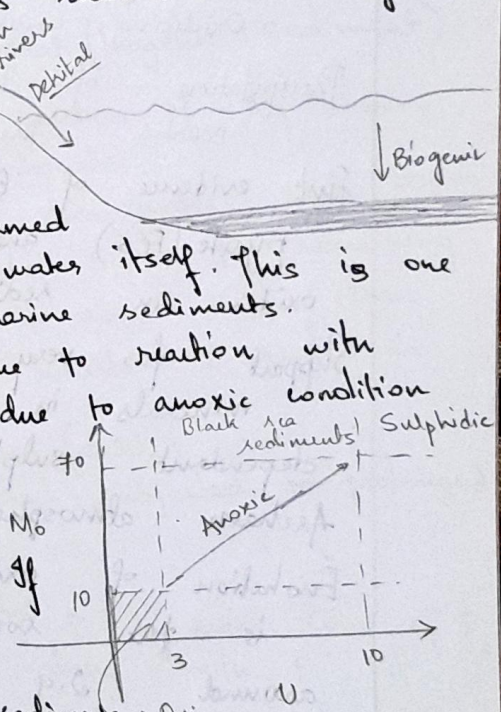 rivers
Detrital
Biogenic
itself. This is one
sediments.
to reaction with
due to anoxic condition
Black sea
sediments
Sulphidic
70
Anoxic
Mo
If
10
3
10
U